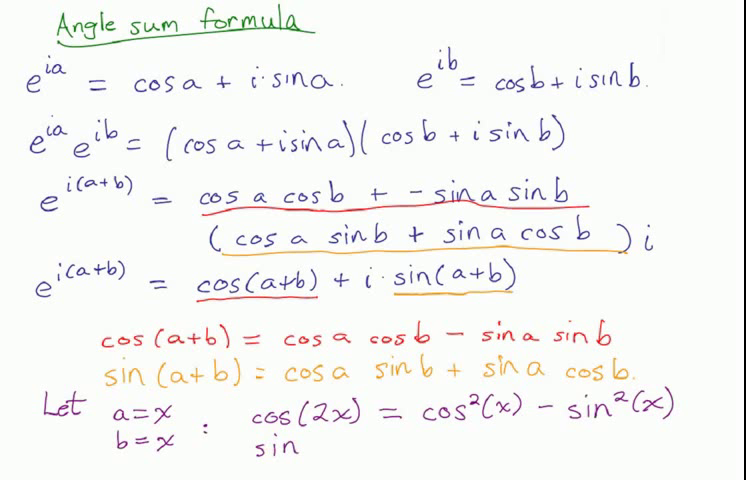 Angle sum formula
e^{ia} = cos a + i · sin a. e^{ib} = cos b + i sin b.
e^{ia} e^{ib} = (cos a + i sin a)(cos b + i sin b)
e^{i(a+b)} = cos a cos b + - sin a sin b
(cos a sin b + sin a cos b) i
e^{i(a+b)} = cos(a+b) + i · sin(a+b)
cos(a+b) = cos a cos b - sin a sin b
sin(a+b) = cos a sin b + sin a cos b.
Let a=x : cos(2x) = cos²(x) - sin²(x)
b=x sin